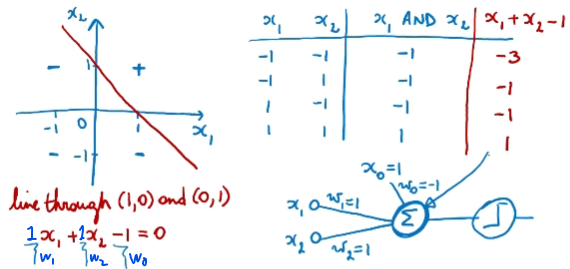 x₂
− 1 +
-1 0 1 x₁
− -1 −
line through (1,0) and (0,1)
1x₁ + 1x₂ − 1 = 0
w₁ w₂ w₀
x₁ x₂ x₁ AND x₂ x₁ + x₂ − 1
-1 -1 -1 -3
-1 1 -1 -1
1 -1 -1 -1
1 1 1 1
x₀=1
w₀=-1
x₁ w₁=1
Σ
x₂ w₂=1